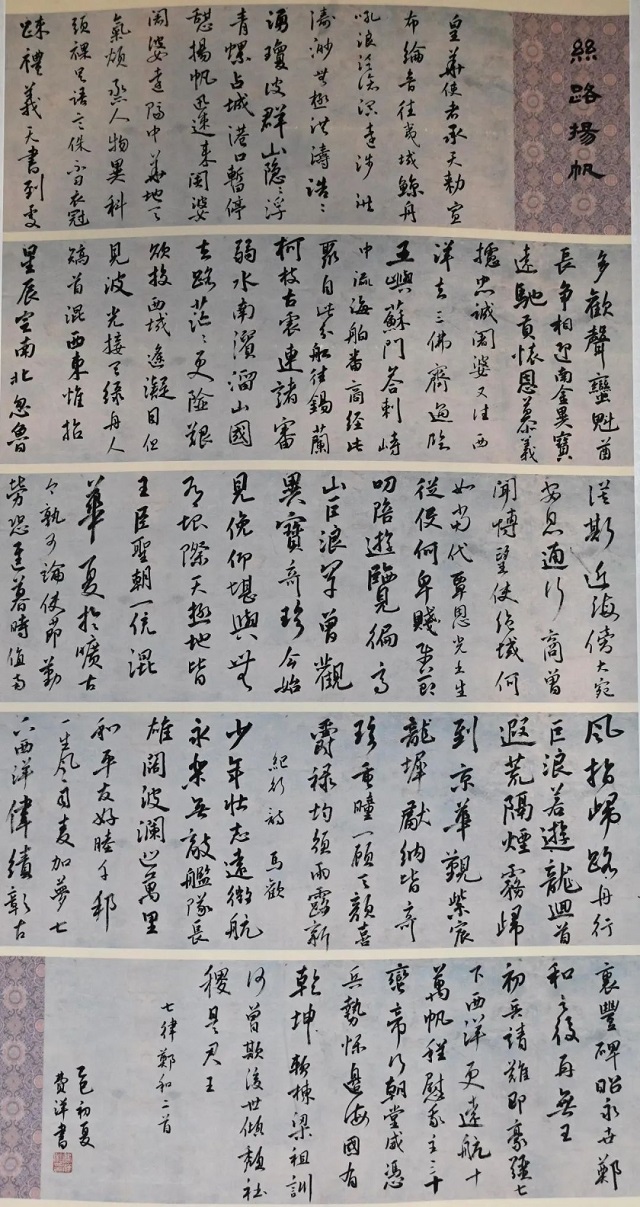 絲路揚帆
皇華使者承天勅宣
布綸音往夷域鯨舟
吼浪泛滄溟遠涉洪
濤渺無極洪濤浩々
湧瓊波群山隱々浮
青螺占城港口暫停
憩揚帆迅速來闍婆
闍婆遠隔中華地天
氣煩蒸人物異科
頭裸足語言侏不習衣冠
疎禮義天書到處
多歡聲蠻魁酋
長爭相迎南金異寶
遠馳貢懷恩慕義
攄忠誠闍婆又往西
洋去三佛齊過臨
五嶼蘇門答剌峙
中流海舶番商經此
聚自此分船往錫蘭
柯枝古裏連諸番
弱水南濱溜山國
去路茫々更險艱
欲投西域遙凝目但
見波光接天綠舟人
矯首混西東惟指
星辰定南北忽魯
謨斯近海傍大宛
安息通行商曾
聞博望使絕域何
如當代覃恩光書生
從役何卑賤使節
叨陪遊覽徧高
山巨浪罕曾觀
異寶奇珍今始
見俛仰堪輿無
有垠際天極地皆
王臣聖朝一統混
華夏於曠古
今孰可論使節勤
勞恐遲暮時值南
風指歸路舟行
巨浪若遊龍迴首
遐荒隔煙霧歸
到京華覲紫宸
龍墀獻納皆奇
珍重瞳一顧天顏喜
爵祿均頒雨露新
紀行詩 馬歡
少年壯志遠微航
永樂無敵艦隊長
雄闊波瀾巡萬里
和平友好睦千邦
一生風雨麦加夢七
下西洋偉績彰古
裏豐碑昭永世鄭
和之後再無王
初兵請難即豪強七
下西洋更遠航十
萬帆程慰我主三千
蠻帝乃朝堂威憑
兵勢懷邊海國有
乾坤賴棟梁祖訓
何曾欺後世傾頹社
稷是君王
七律鄭和二首
乙巳初夏
費洋書